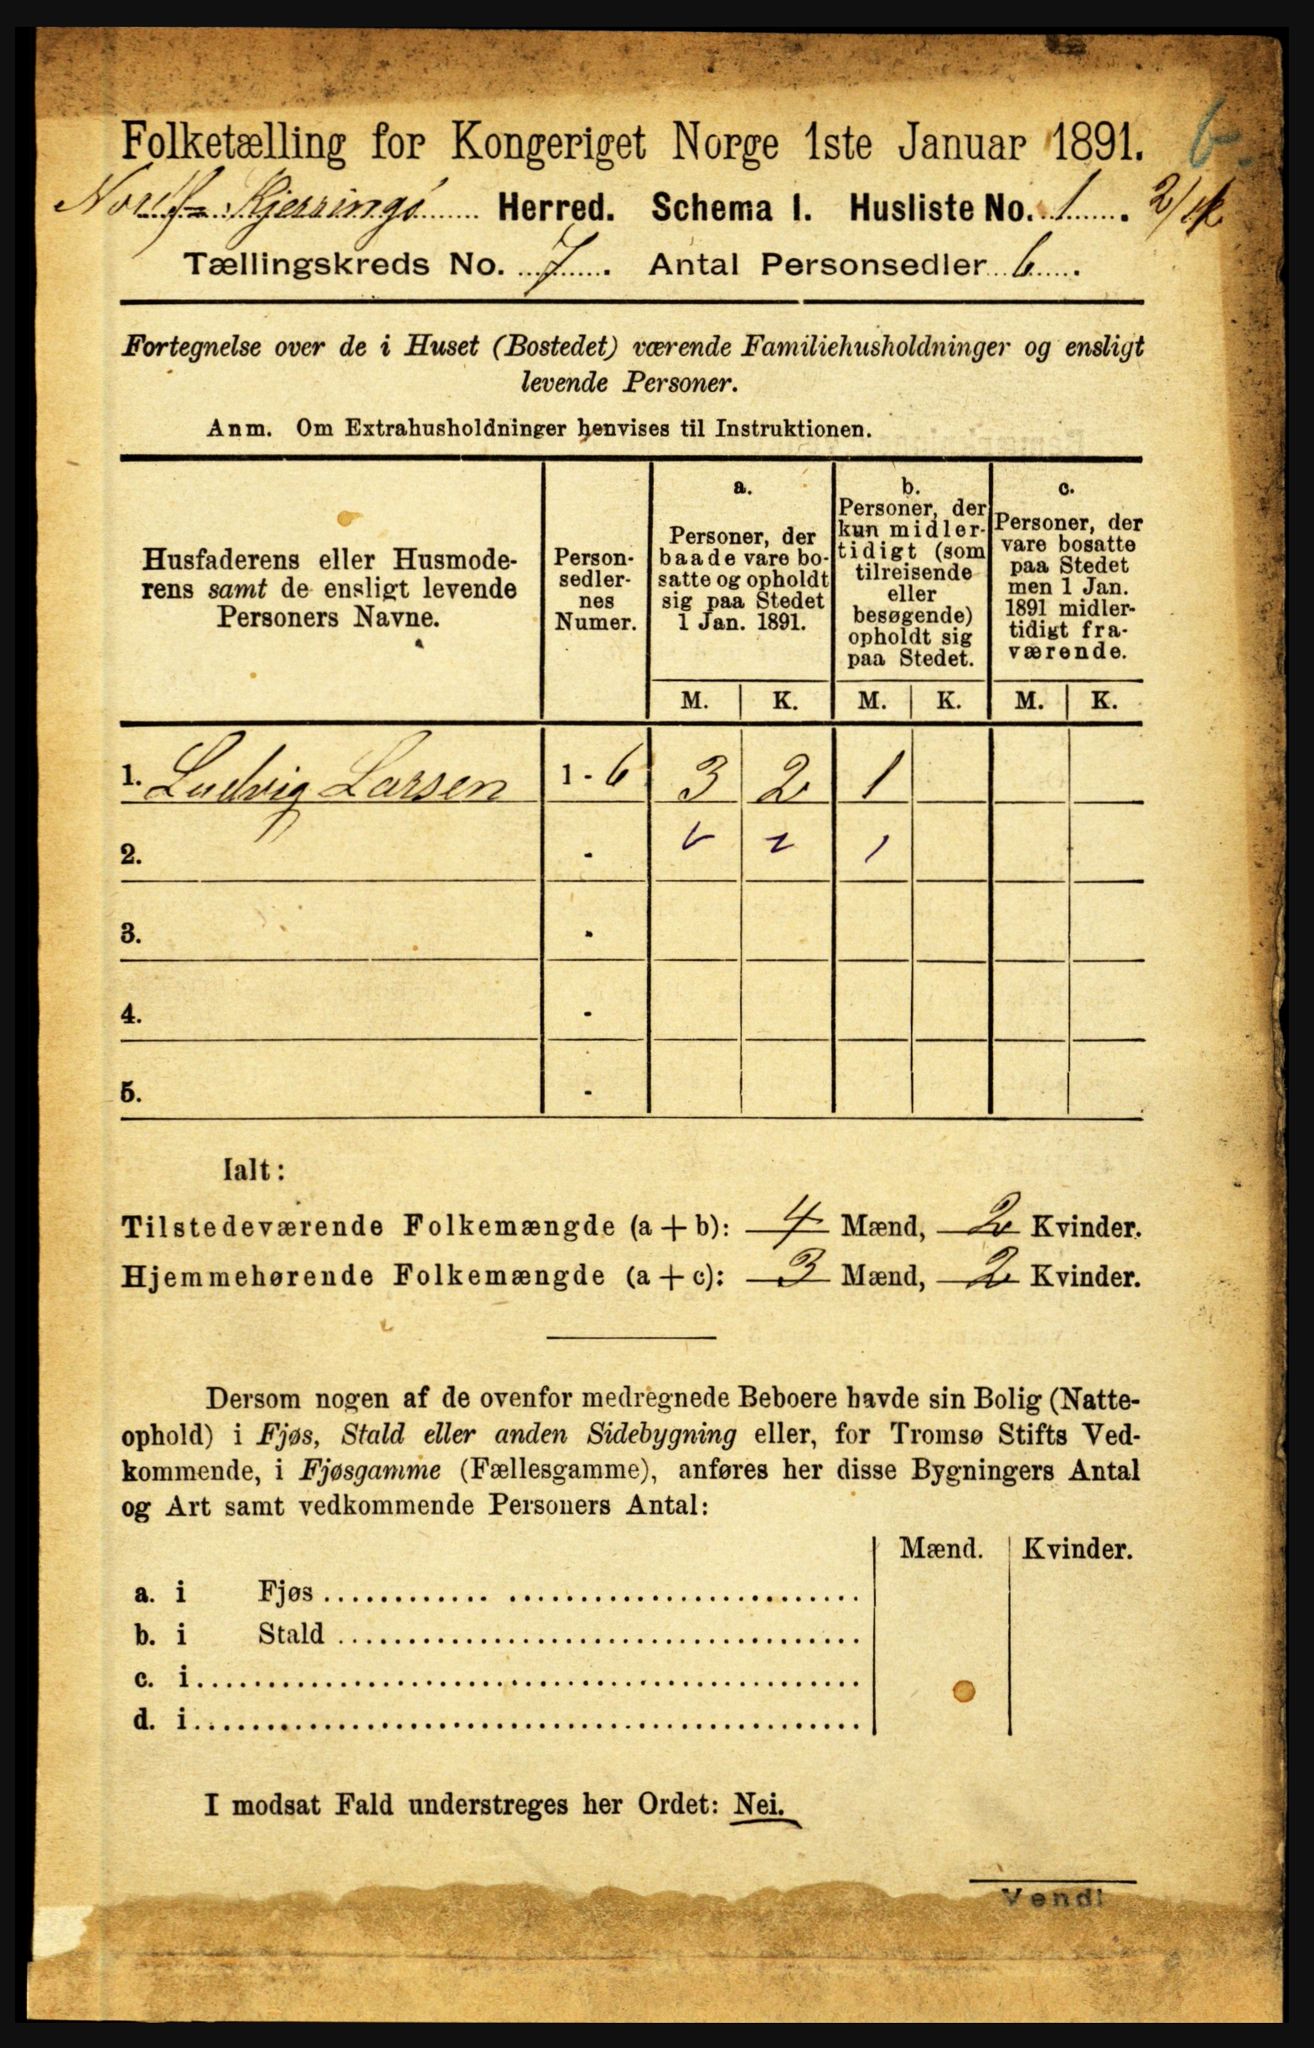 Folketælling for Kongeriget Norge 1ste Januar 1891. 6
Nordf- Kjerringø Herred. Schema I. Husliste No. 1. 2/
Tællingskreds No. 7. Antal Personsedler 6.
Fortegnelse over de i Huset (Bostedet) værende Familiehusholdninger og ensligt
levende Personer.
Anm. Om Extrahusholdninger henvises til Instruktionen.
Husfaderens eller Husmode-
rens samt de ensligt levende
Personers Navne.
Person-
sedler-
nes
Numer.
a.
Personer, der
baade vare bo-
satte og opholdt
sig paa Stedet
1 Jan. 1891.
b.
Personer, der
kun midler-
tidigt (som
tilreisende
eller
besøgende)
opholdt sig
paa Stedet.
c.
Personer, der
vare bosatte
paa Stedet
men 1 Jan.
1891 midler-
tidigt fra-
værende.
M. K. M. K. M. K.
1. Ludvig Larsen 1 - 6 3 2 1
2. - 2 1
3. -
4. -
5. -
Ialt:
Tilstedeværende Folkemængde (a + b): 4 Mænd, 2 Kvinder.
Hjemmehørende Folkemængde (a + c): 3 Mænd, 2 Kvinder.
Dersom nogen af de ovenfor medregnede Beboere havde sin Bolig (Natte-
ophold) i Fjøs, Stald eller anden Sidebygning eller, for Tromsø Stifts Ved-
kommende, i Fjøsgamme (Fællesgamme), anføres her disse Bygningers Antal
og Art samt vedkommende Personers Antal:
Mænd. Kvinder.
a. i Fjøs
b. i Stald
c. i
d. i
I modsat Fald understreges her Ordet: Nei.
Vend!